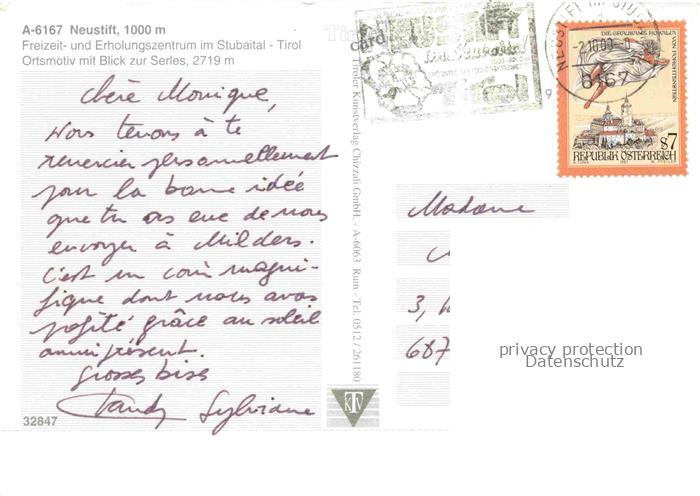 A-6167 Neustift, 1000 m
Freizeit- und Erholungszentrum im Stubaital - Tirol
Ortsmotiv mit Blick zur Serles, 2719 m
Chère Monique,
Nous tenons à te
remercier personnellement
pour la bonne idée
que tu as eue de nous
envoyer à Milders.
C'est un coin magni-
fique dont nous avons
profité grâce au soleil
omniprésent.
Grosses bises
Sylviane
32847
Tiroler Kunstverlag Chizzali GmbH. - A-6063 Rum - Tel. 0512 / 261180
KTV
card
6167
S7
REPUBLIK ÖSTERREICH
Madame
3,
687
privacy protection
Datenschutz